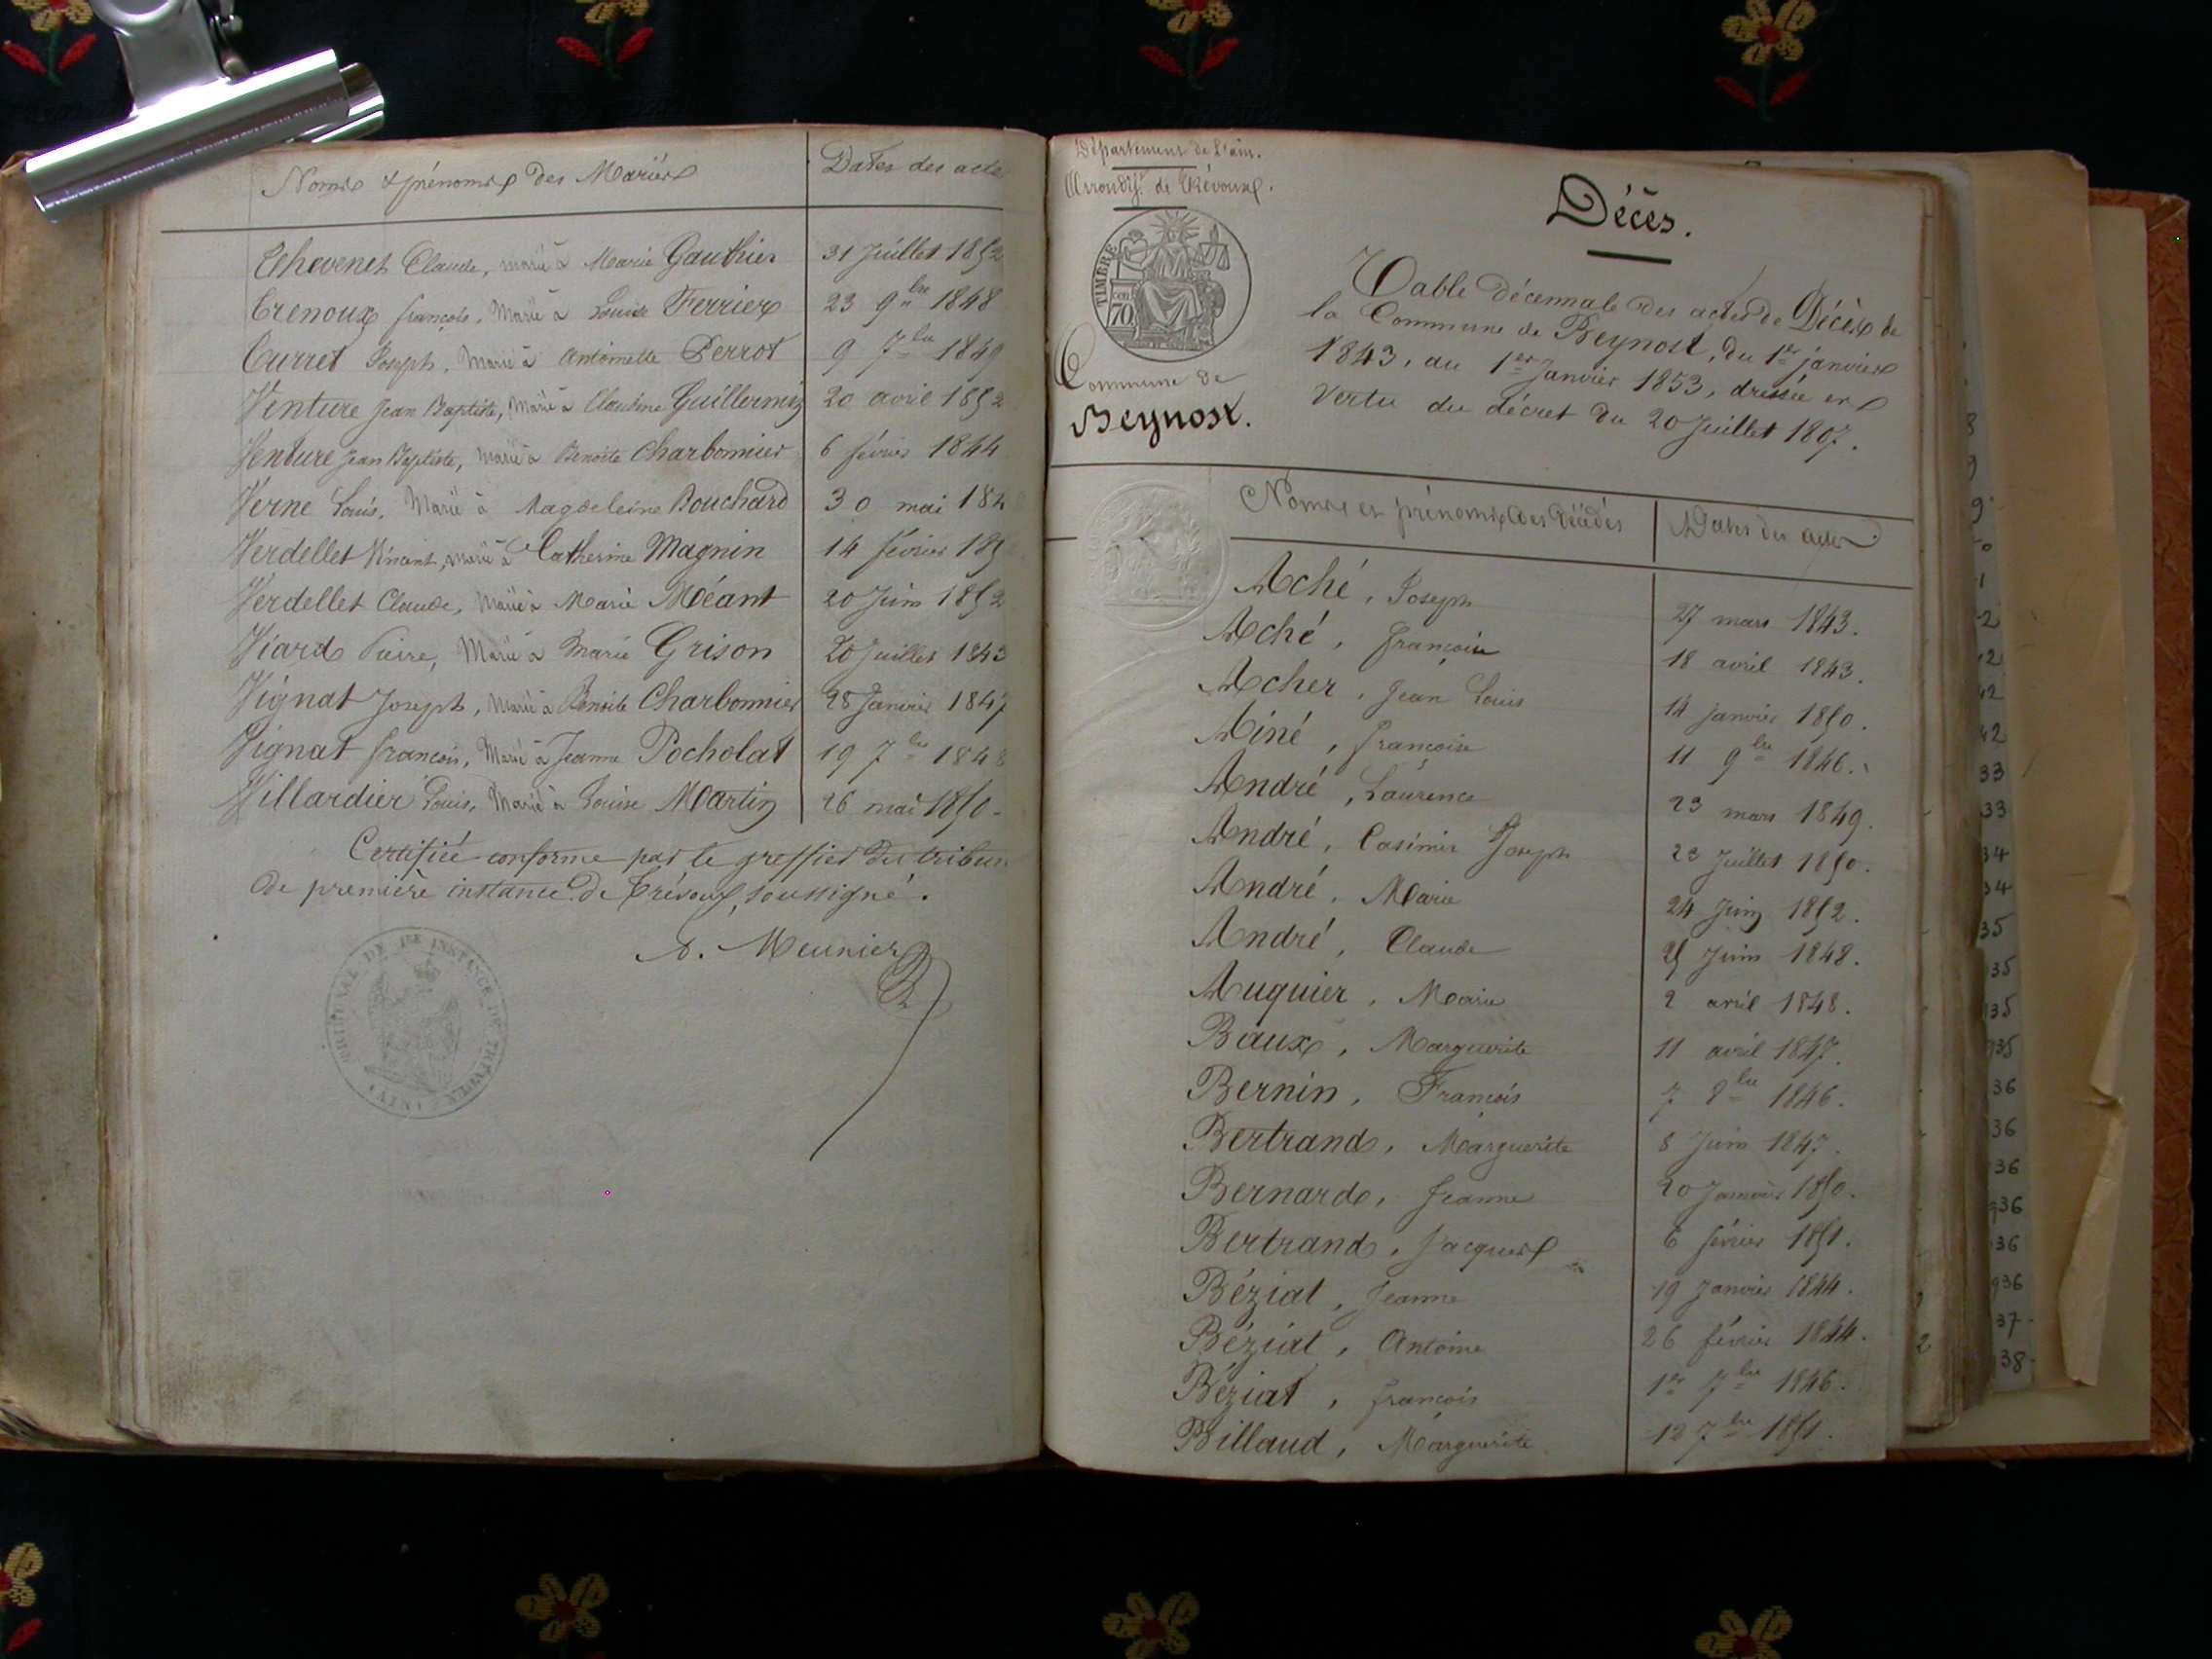 Noms & prénoms des Mariés Dates des acte
Thevenet Claude, marié à Marie Gauthier 31 Juillet 1852
Trenoux françois, Marié à Louise Ferrier 23 9bre 1848
Curret Joseph, Marié à Antoinette Perrot 9 7bre 1849
Venture Jean Baptiste, Marié à Claudine Guillermin 20 avril 1852
Venture Jean Baptiste, Marié à Benoite Charbonnier 6 février 1844
Verne Louis, Marié à Magdeleine Bouchard 30 mai 184
Verdellet Vincent, marié à Catherine Magnin 14 février 185
Verdellet Claude, Marié à Marie Méant 20 Juin 1852
Viard Pierre, Marié à Marie Grison 20 Juillet 1843
Vignat Joseph, Marié à Benoite Charbonnier 28 Janvier 1847
Vignat françois, Marié à Jeanne Pocholat 19 7bre 1848
Villardier Louis, Marié à Louise Martin 26 mai 1850-
Certifiée conforme par le greffier du tribun
de première instance de Trévoux, soussigné.
Meunier
TRIBUNAL DE 1RE INSTANCE DE TRÉVOUX (AIN)
Département de l'ain.
Arrondt. de Trévoux.
TIMBRE
70
Commune de
Beynost.
Décès.
Table décennale des actes de Décès de
la Commune de Beynost, du 1er janvier
1843, au 1er Janvier 1853, dressée en
vertu du décret du 20 Juillet 1807.
Noms et prénoms des Décédés Dates des actes
Aché, Joseph 27 mars 1843.
Aché, françoise 18 avril 1843.
Acher, Jean Louis 14 janvier 1850.
Ainé, françoise 11 9bre 1846.
André, Laurence 23 mars 1849.
André, Casimir Joseph 23 Juillet 1850.
André, Marie 24 Juin 1852.
André, Claude 25 Juin 1848.
Auquier, Marie 2 avril 1848.
Baux, Marguerite 11 avril 1847.
Bernin, François 7 8bre 1846.
Bertrand, Marguerite 8 Juin 1847.
Bernard, Jeanne 20 Janvier 1850.
Bertrand, Jacques 6 février 1851.
Béziat, Jeanne 19 Janvier 1844.
Béziat, Antoine 26 février 1844.
Béziat, françois 1er 7bre 1846.
Billaud, Marguerite 12 7bre 1851.